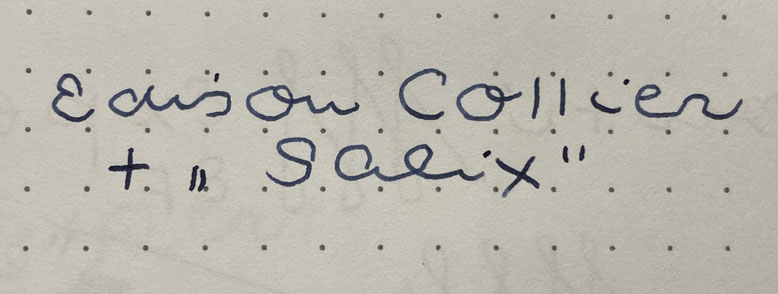 Edison Collier
+ „Salix"